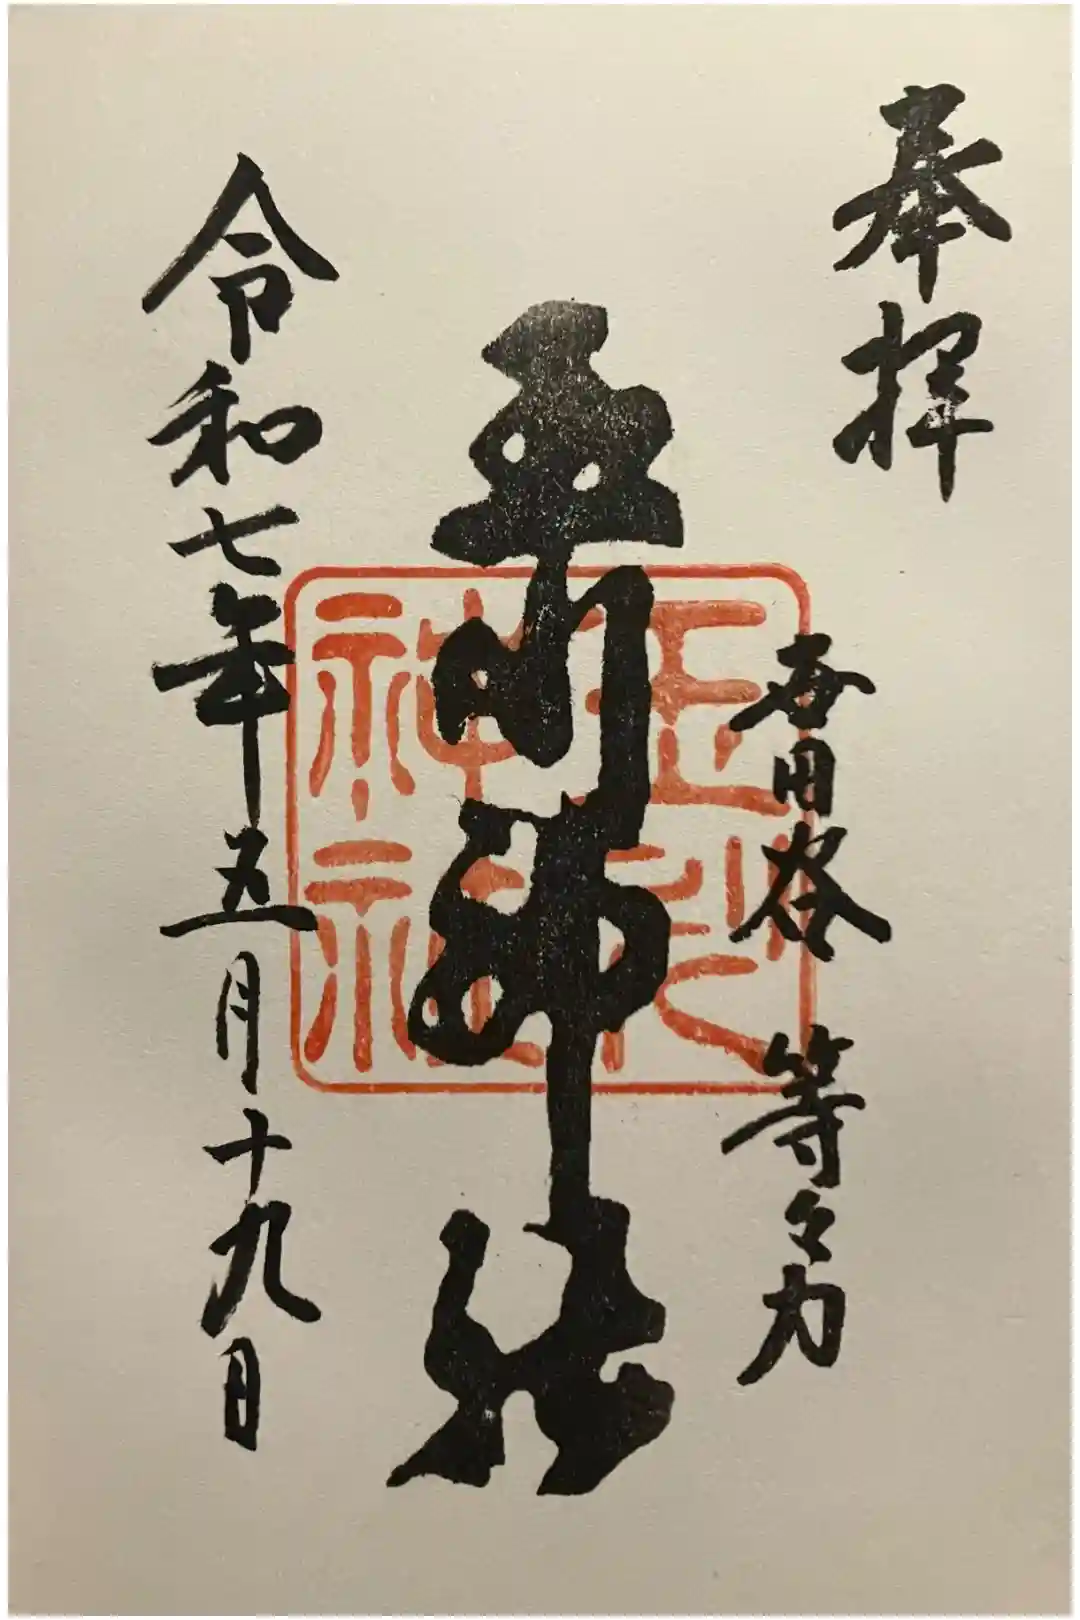 奉拝
世田谷 等々力
玉川神社
令和七年五月十九日